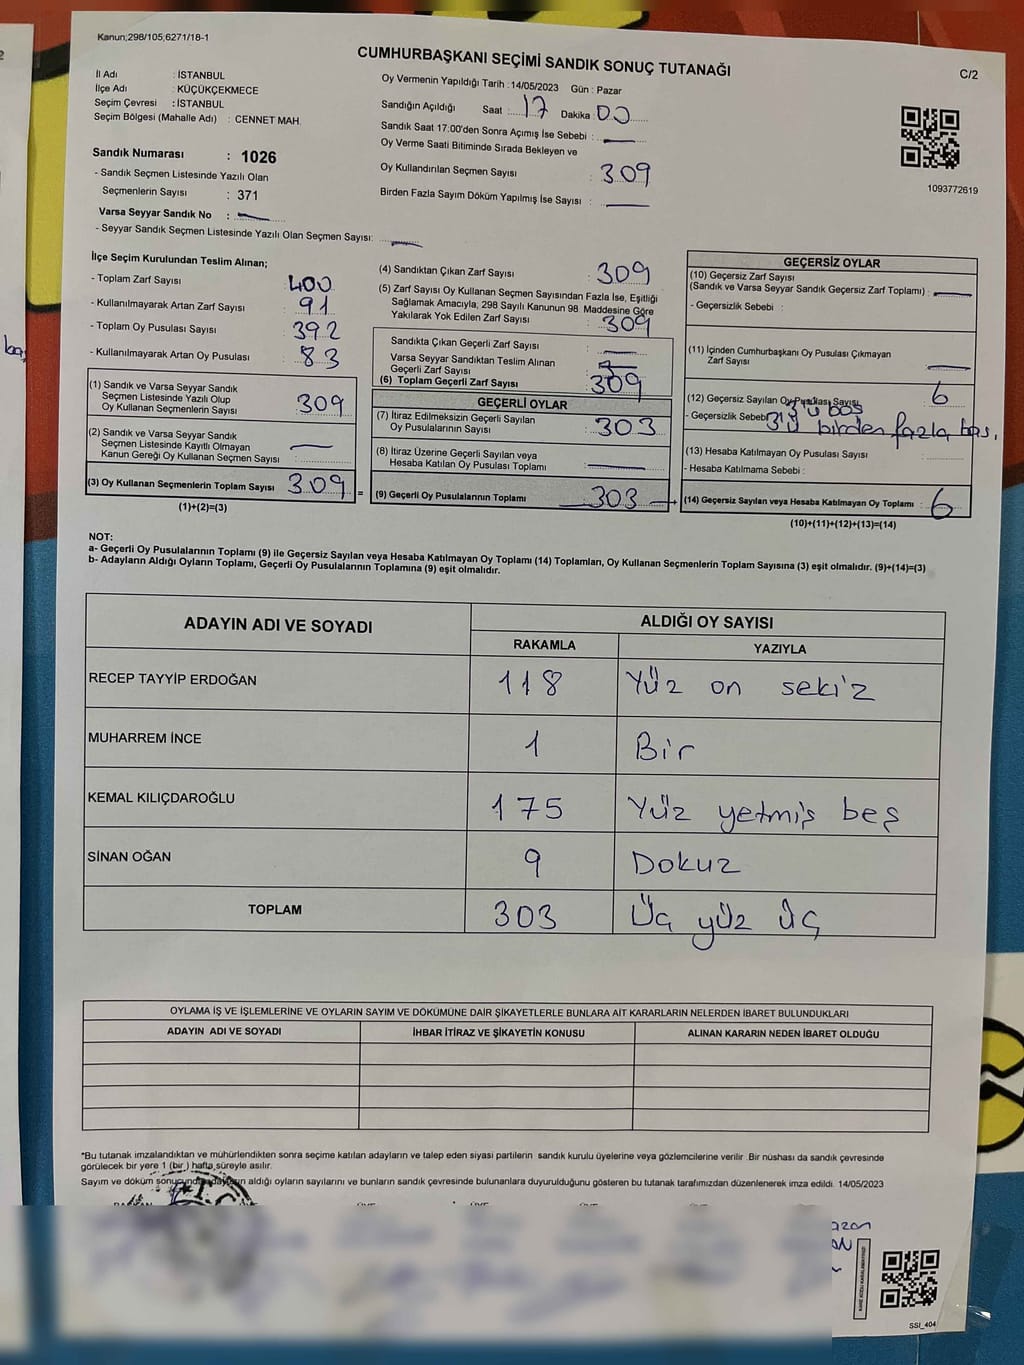 Kanun;298/105;6271/18-1
CUMHURBAŞKANI SEÇİMİ SANDIK SONUÇ TUTANAĞI
C/2
İl Adı : İSTANBUL
İlçe Adı : KÜÇÜKÇEKMECE
Seçim Çevresi : İSTANBUL
Seçim Bölgesi (Mahalle Adı) : CENNET MAH.
Sandık Numarası : 1026
- Sandık Seçmen Listesinde Yazılı Olan
Seçmenlerin Sayısı : 371
Varsa Seyyar Sandık No :
- Seyyar Sandık Seçmen Listesinde Yazılı Olan Seçmen Sayısı:
Oy Vermenin Yapıldığı Tarih : 14/05/2023 Gün : Pazar
Sandığın Açıldığı Saat : 17 Dakika : 00
Sandık Saat 17:00'den Sonra Açımış İse Sebebi :
Oy Verme Saati Bitiminde Sırada Bekleyen ve
Oy Kullandırılan Seçmen Sayısı : 309
Birden Fazla Sayım Döküm Yapılmış İse Sayısı :
1093772619
İlçe Seçim Kurulundan Teslim Alınan;
- Toplam Zarf Sayısı 400
- Kullanılmayarak Artan Zarf Sayısı : 91
- Toplam Oy Pusulası Sayısı 392
- Kullanılmayarak Artan Oy Pusulası : 83
(1) Sandık ve Varsa Seyyar Sandık
Seçmen Listesinde Yazılı Olup
Oy Kullanan Seçmenlerin Sayısı : 309
(2) Sandık ve Varsa Seyyar Sandık
Seçmen Listesinde Kayıtlı Olmayan
Kanun Gereği Oy Kullanan Seçmen Sayısı :
(3) Oy Kullanan Seçmenlerin Toplam Sayısı : 309 =
(1)+(2)=(3)
(4) Sandıktan Çıkan Zarf Sayısı : 309
(5) Zarf Sayısı Oy Kullanan Seçmen Sayısından Fazla İse, Eşitliği
Sağlamak Amacıyla, 298 Sayılı Kanunun 98. Maddesine Göre
Yakılarak Yok Edilen Zarf Sayısı : 309
Sandıkta Çıkan Geçerli Zarf Sayısı :
Varsa Seyyar Sandıktan Teslim Alınan
Geçerli Zarf Sayısı :
(6) Toplam Geçerli Zarf Sayısı 309
GEÇERLİ OYLAR
(7) İtiraz Edilmeksizin Geçerli Sayılan
Oy Pusulalarının Sayısı : 303
(8) İtiraz Üzerine Geçerli Sayılan veya
Hesaba Katılan Oy Pusulası Toplamı :
(9) Geçerli Oy Pusulalarının Toplamı : 303 +
GEÇERSİZ OYLAR
(10) Geçersiz Zarf Sayısı
(Sandık ve Varsa Seyyar Sandık Geçersiz Zarf Toplamı) :
- Geçersizlik Sebebi :
(11) İçinden Cumhurbaşkanı Oy Pusulası Çıkmayan
Zarf Sayısı :
(12) Geçersiz Sayılan Oy Pusulası Sayısı : 6
3'ü boş
- Geçersizlik Sebebi : 3'ü birden fazla bas.
(13) Hesaba Katılmayan Oy Pusulası Sayısı :
- Hesaba Katılmama Sebebi :
(14) Geçersiz Sayılan veya Hesaba Katılmayan Oy Toplamı : 6
(10)+(11)+(12)+(13)=(14)
NOT:
a- Geçerli Oy Pusulalarının Toplamı (9) ile Geçersiz Sayılan veya Hesaba Katılmayan Oy Toplamı (14) Toplamları, Oy Kullanan Seçmenlerin Toplam Sayısına (3) eşit olmalıdır. (9)+(14)=(3)
b- Adayların Aldığı Oyların Toplamı, Geçerli Oy Pusulalarının Toplamına (9) eşit olmalıdır.
ADAYIN ADI VE SOYADI ALDIĞI OY SAYISI
RAKAMLA YAZIYLA
RECEP TAYYİP ERDOĞAN 118 Yüz on sekiz
MUHARREM İNCE 1 Bir
KEMAL KILIÇDAROĞLU 175 Yüz yetmiş beş
SİNAN OĞAN 9 Dokuz
TOPLAM 303 Üç yüz üç
OYLAMA İŞ VE İŞLEMLERİNE VE OYLARIN SAYIM VE DÖKÜMÜNE DAİR ŞİKAYETLERLE BUNLARA AİT KARARLARIN NELERDEN İBARET BULUNDUKLARI
ADAYIN ADI VE SOYADI İHBAR İTİRAZ VE ŞİKAYETİN KONUSU ALINAN KARARIN NEDEN İBARET OLDUĞU
*Bu tutanak imzalandıktan ve mühürlendikten sonra seçime katılan adayların ve talep eden siyasi partilerin sandık kurulu üyelerine veya gözlemcilerine verilir .Bir nüshası da sandık çevresinde
görülecek bir yere 1 (bir ) hafta süreyle asılır.
Sayım ve döküm sonucunda adayların aldığı oyların sayılarını ve bunların sandık çevresinde bulunanlara duyurulduğunu gösteren bu tutanak tarafımızdan düzenlenerek imza edildi. 14/05/2023
SSİ_404